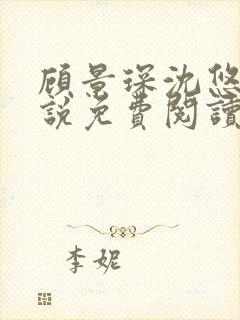 顾景琛沈悠
說免費閱讀
李妮